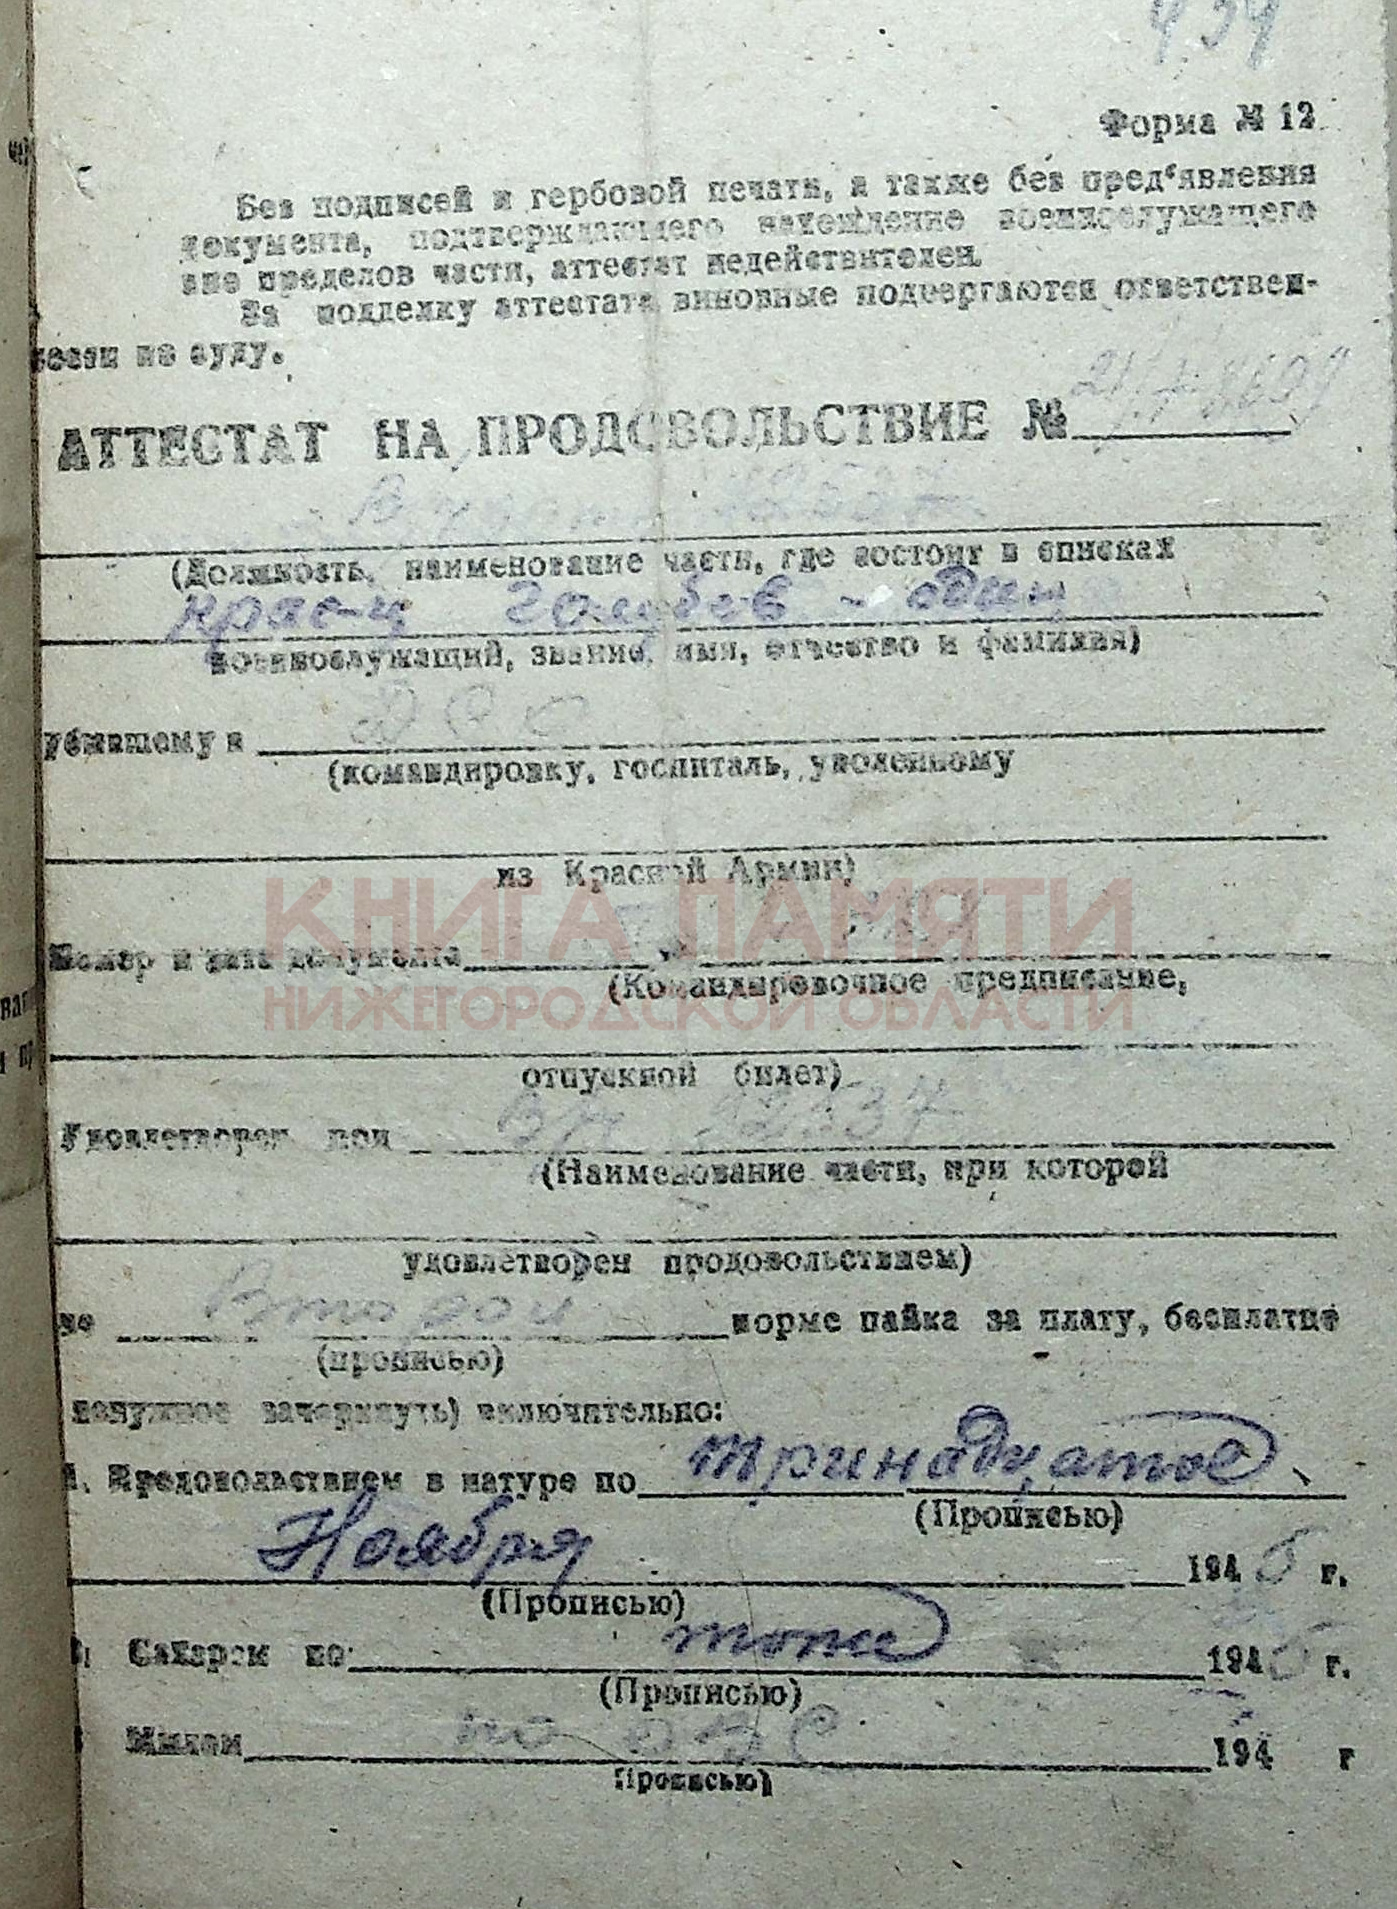 Форма № 12
Без подписей и гербовой печати, а также без пред‘явления
документа, подтверждающего нахождение военнослужащего
вне пределов части, аттестат недействителен.
За подделку аттестата виновные подвергаются ответствен-
ности по суду.
АТТЕСТАТ НА ПРОДОВОЛЬСТВИЕ №
(Должность, наименование части, где состоит в списках
крас-ц Голубев - один
военнослужащий, звание, имя, отчество и фамилия)
убывшему в
(командировку, госпиталь, уволенному
из Красной Армии)
КНИГА ПАМЯТИ
Номер и дата документа
(Командировочное предписание,
НИЖЕГОРОДСКОЙ ОБЛАСТИ
отпускной билет)
Удовлетворен при
(Наименование части, при которой
удовлетворен продовольствием)
по Второй норме пайка за плату, бесплатно
(прописью)
ненужное зачеркнуть) включительно:
1. Продовольствием в натуре по тринадцатое
(Прописью)
Ноября 1945 г.
(Прописью)
Сахаром по тоже 1945 г.
(Прописью)
Мылом по 194 г
Прописью)